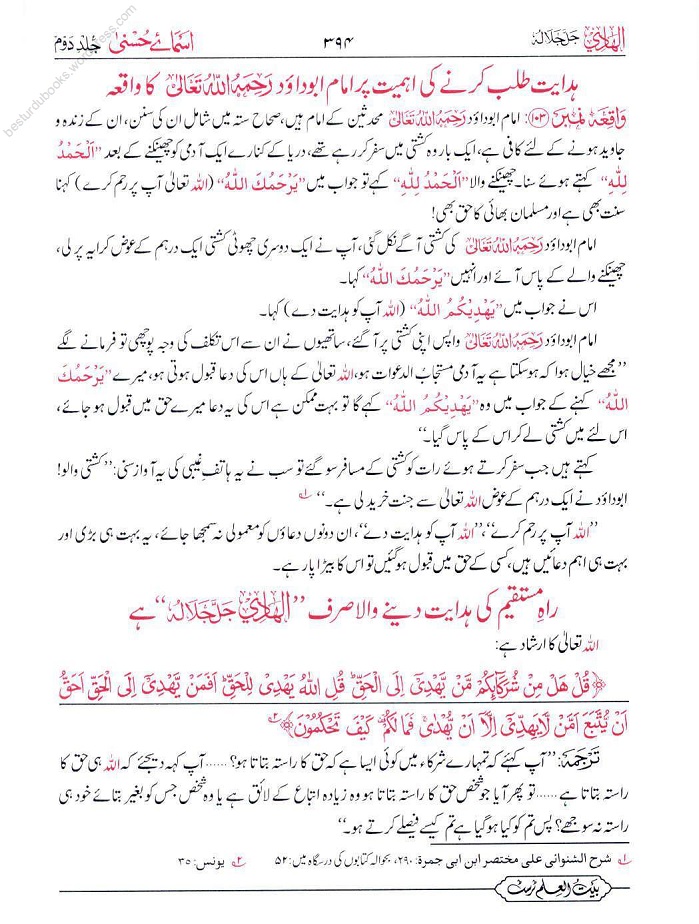 besturdubooks.wordpress.com
الهادي جَلَّ جَلَالُهُ
۳۹۴
اسمائے حُسنیٰ جلد دوم
ہدایت طلب کرنے کی اہمیت پر امام ابوداؤد رَحِمَهُ اللّٰهُ تَعَالٰی کا واقعہ
واقعہ نمبر (۱۰۳): امام ابوداؤد رَحِمَهُ اللّٰهُ تَعَالٰی محدثین کے امام ہیں، صحاح ستہ میں شامل ان کی سنن، ان کے زندہ و
جاوید ہونے کے لئے کافی ہے، ایک بار وہ کشتی میں سفر کر رہے تھے، دریا کے کنارے ایک آدمی کو چھینکنے کے بعد ”اَلْحَمْدُ
لِلّٰهِ“ کہتے ہوئے سنا۔ چھینکنے والا ”اَلْحَمْدُ لِلّٰهِ“ کہے تو جواب میں ”يَرْحَمُكَ اللّٰهُ“ (اللہ تعالیٰ آپ پر رحم کرے) کہنا
سنت بھی ہے اور مسلمان بھائی کا حق بھی!
امام ابوداؤد رَحِمَهُ اللّٰهُ تَعَالٰی کی کشتی آگے نکل گئی، آپ نے ایک دوسری چھوٹی کشتی ایک درہم کے عوض کرایہ پر لی،
چھینکنے والے کے پاس آئے اور انہیں ”يَرْحَمُكَ اللّٰهُ“ کہا۔
اس نے جواب میں ”يَهْدِيْكُمُ اللّٰهُ“ (اللہ آپ کو ہدایت دے) کہا۔
امام ابوداؤد رَحِمَهُ اللّٰهُ تَعَالٰی واپس اپنی کشتی پر آ گئے، ساتھیوں نے ان سے اس تکلف کی وجہ پوچھی تو فرمانے لگے
”مجھے خیال ہوا کہ ہو سکتا ہے یہ آدمی مستجاب الدعوات ہو، اللہ تعالیٰ کے ہاں اس کی دعا قبول ہوتی ہو، میرے ”يَرْحَمُكَ
اللّٰهُ“ کہنے کے جواب میں وہ ”يَهْدِيْكُمُ اللّٰهُ“ کہے گا تو بہت ممکن ہے اس کی یہ دعا میرے حق میں قبول ہو جائے،
اس لئے میں کشتی لے کر اس کے پاس گیا۔“
کہتے ہیں جب سفر کرتے ہوئے رات کو کشتی کے مسافر سو گئے تو سب نے یہ ہاتفِ غیبی کی یہ آواز سنی: ”کشتی والو!
ابوداؤد نے ایک درہم کے عوض اللہ تعالیٰ سے جنت خرید لی ہے۔“ ۱؎
”اللہ آپ پر رحم کرے“، ”اللہ آپ کو ہدایت دے“، ان دونوں دعاؤں کو معمولی نہ سمجھا جائے، یہ بہت ہی بڑی اور
بہت ہی اہم دعائیں ہیں، کسی کے حق میں قبول ہو گئیں تو اس کا بیڑا پار ہے۔
راہِ مستقیم کی ہدایت دینے والا صرف ”الهادي جَلَّ جَلَالُهُ“ ہے
اللہ تعالیٰ کا ارشاد ہے:
﴿قُلْ هَلْ مِنْ شُرَكَآئِكُمْ مَّنْ يَّهْدِيْٓ اِلَى الْحَقِّ ؕ قُلِ اللّٰهُ يَهْدِيْ لِلْحَقِّ ؕ اَفَمَنْ يَّهْدِيْٓ اِلَى الْحَقِّ اَحَقُّ
اَنْ يُّتَّبَعَ اَمَّنْ لَّا يَهِدِّيْٓ اِلَّآ اَنْ يُّهْدٰى ۚ فَمَا لَكُمْ ۟ كَيْفَ تَحْكُمُوْنَ﴾ ۲؎
تَرجَمَہ: ”آپ کہئے کہ تمہارے شرکاء میں کوئی ایسا ہے کہ حق کا راستہ بتاتا ہو؟ ...... آپ کہہ دیجئے کہ اللہ ہی حق کا
راستہ بتاتا ہے ...... تو پھر آیا جو شخص حق کا راستہ بتاتا ہو وہ زیادہ اتباع کے لائق ہے یا وہ شخص جس کو بغیر بتائے خود ہی
راستہ نہ سوجھے؟ پس تم کو کیا ہو گیا ہے تم کیسے فیصلے کرتے ہو۔“
۱؎ شرح الشنوانی علی مختصر ابن ابی جمرة: ۲۹۰، بحوالہ کتابوں کی درسگاہ میں: ۵۲ ۲؎ یونس: ۳۵
بیت العلم ٹرسٹ